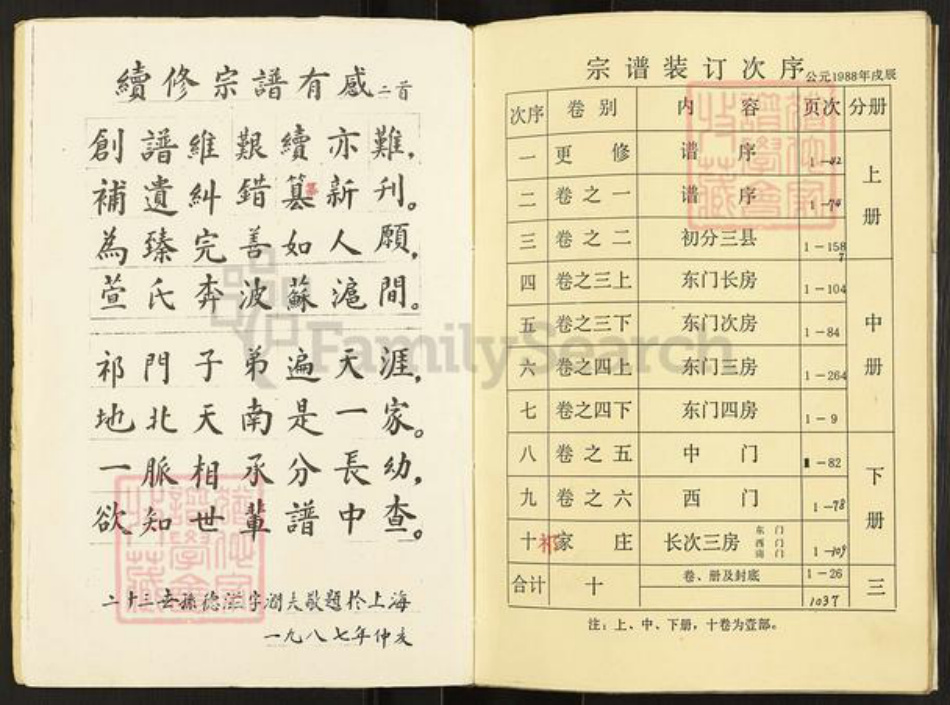 續修宗譜有感 二首
創譜維艱續亦難，
補遺糾錯篡新刊。
為臻完善如人願，
萱氏奔波蘇滬間。
祁門子弟遍天涯，
地北天南是一家。
一脈相承分長幼，
欲知世輩譜中查。
二十三世孫德滋字潤夫敬題於上海
一九八七年仲亥
宗谱装订次序 公元1988年戌辰
次序 卷别 内容 页次 分册
一 更修 谱序 1-42 上册
二 卷之一 谱序 1-74
三 卷之二 初分三县 1-158
四 卷之三上 东门长房 1-104 中册
五 卷之三下 东门次房 1-84
六 卷之四上 东门三房 1-264
七 卷之四下 东门四房 1-9
八 卷之五 中门 1-82 下册
九 卷之六 西门 1-78
十 祁家庄 长次三房 东门 西门 南门 1-109
合计 十 卷、册及封底 1-26 三
1037
注：上、中、下册，十卷为壹部。
FamilySearch